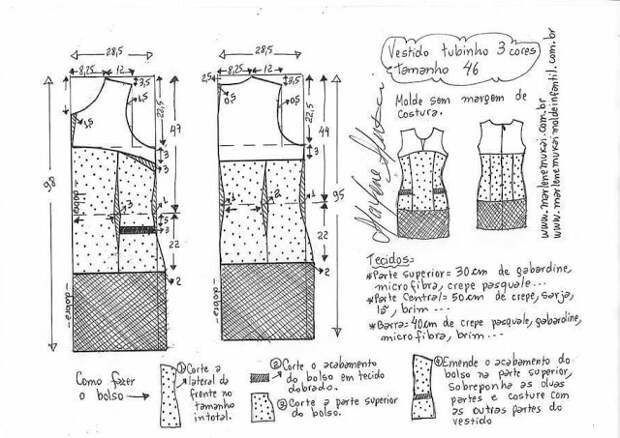 Vestido tubinho 3 cores
tamanho 46
28,5
8,25
12
3,5
1,5
1,5
22,5
47
98
3
3
3
1
5
3
22
2
dobra
28,5
8,25
12
2,5
3,5
0,5
0,5
22,5
44
3
2
1
95
22
2
dobra
Molde sem margem de
costura.
Marlene Mukai
www.marlenemukai.com.br
www.marlenemukaimoldeinfantil.com.br
Tecidos=
*Parte superior= 30cm de gabardine,
microfibra, crepe pasquale...
*Parte Central= 50cm de crepe, sarja,
lã, brim...
*Barra= 40cm de crepe pasquale, gabardine,
microfibra, brim...
Como fazer
o bolso
① Corte a
lateral da
frente no
tamanho
intotal.
② Corte o acabamento
do bolso em tecido
dobrado.
③ Corte a parte superior
do bolso.
④ Emende o acabamento do
bolso na parte superior,
sobreponha as duas
partes e costure com
as outras partes do
vestido